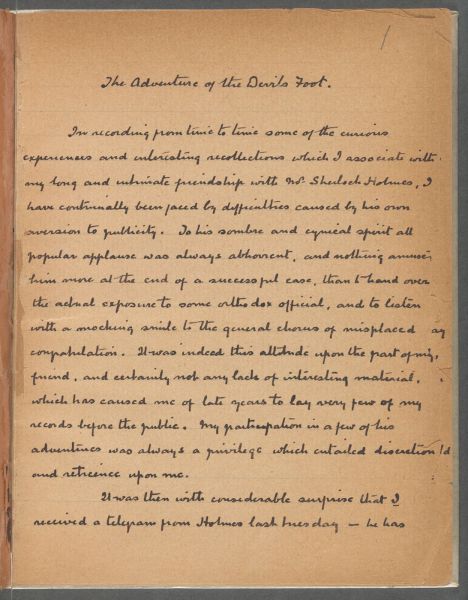 1
The Adventure of the Devils Foot.
In recording from time to time some of the curious
experiences and interesting recollections which I associate with
my long and intimate friendship with Mr. Sherlock Holmes, I
have continually been faced by difficulties caused by his own
aversion to publicity. To his sombre and cynical spirit all
popular applause was always abhorrent, and nothing amused
him more at the end of a successful case, than to hand over
the actual exposure to some orthodox official, and to listen
with a mocking smile to the general chorus of misplaced
congratulation. It was indeed this attitude upon the part of my
friend, and certainly not any lack of interesting material,
which has caused me of late years to lay very few of my
records before the public. My participation in a few of his
adventures was always a privilege which entailed discretion
and reticence upon me.
It was then with considerable surprise that I
received a telegram from Holmes last tuesday — he has